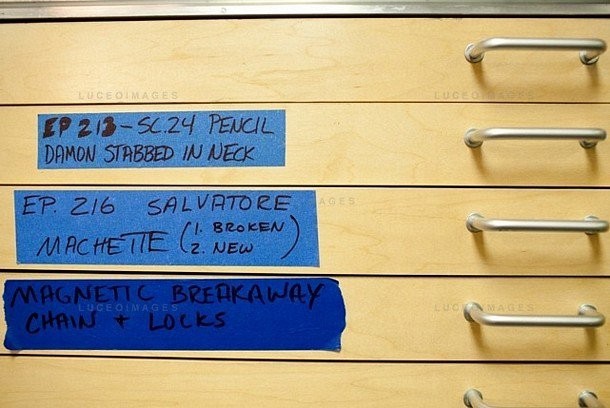 LUCEOIMAGES LUCEOIMAGES
EP 213 - SC.24 PENCIL
DAMON STABBED IN NECK
LUCEOIMAGES
EP. 216 SALVATORE
MACHETTE (1. BROKEN
2. NEW)
MAGNETIC BREAKAWAY
CHAIN + LOCKS
LUCEOIMAGES LUCEOIMAGES